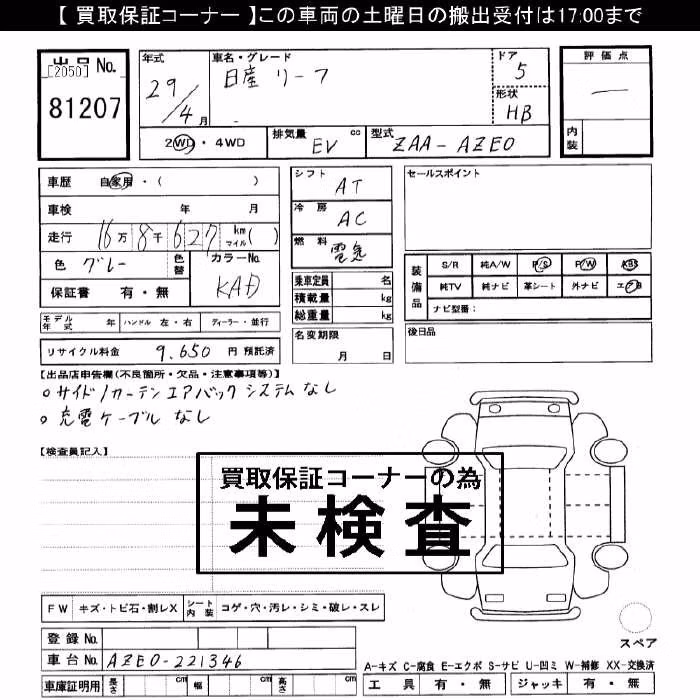 【 買取保証コーナー 】この車両の土曜日の搬出受付は17:00まで
出品 No.
[2050]
81207
年式 29/4月
車名・グレード 日産 リーフ
ドア 5
形状 HB
評価点 —
内装
2WD・4WD
排気量 EV cc
型式 ZAA-AZEO
車歴 自家用・( )
車検 年 月
走行 16万8千627 km マイル( )
色 グレー 色替
カラーNo. KAD
保証書 有・無
シフト AT
冷房 AC
燃料 電気
乗車定員 名
積載量 kg
総重量 kg
セールスポイント
装備品
S/R 純A/W P/S P/W ABS
純TV 純ナビ 革シート 外ナビ エアB
ナビ型番：
モデル年式 年 ハンドル 左・右 ディーラー・並行
リサイクル料金 9,650 円 預託済
名変期限 月 日
後日品
【出品店申告欄(不良箇所・欠品・注意事項等)】
○サイド/カーテンエアバックシステムなし
○充電ケーブルなし
【検査員記入】
買取保証コーナーの為
未検査
FW キズ・トビ石・割レX シート内装 コゲ・穴・汚レ・シミ・破レ・スレ
登録 No.
車台 No. AZEO-221346
車庫証明用 長さ cm 幅 cm 高さ cm
スペア
A−キズ C−腐食 E−エクボ S−サビ U−凹ミ W−補修 XX−交換済
工具 有・無 ジャッキ 有・無